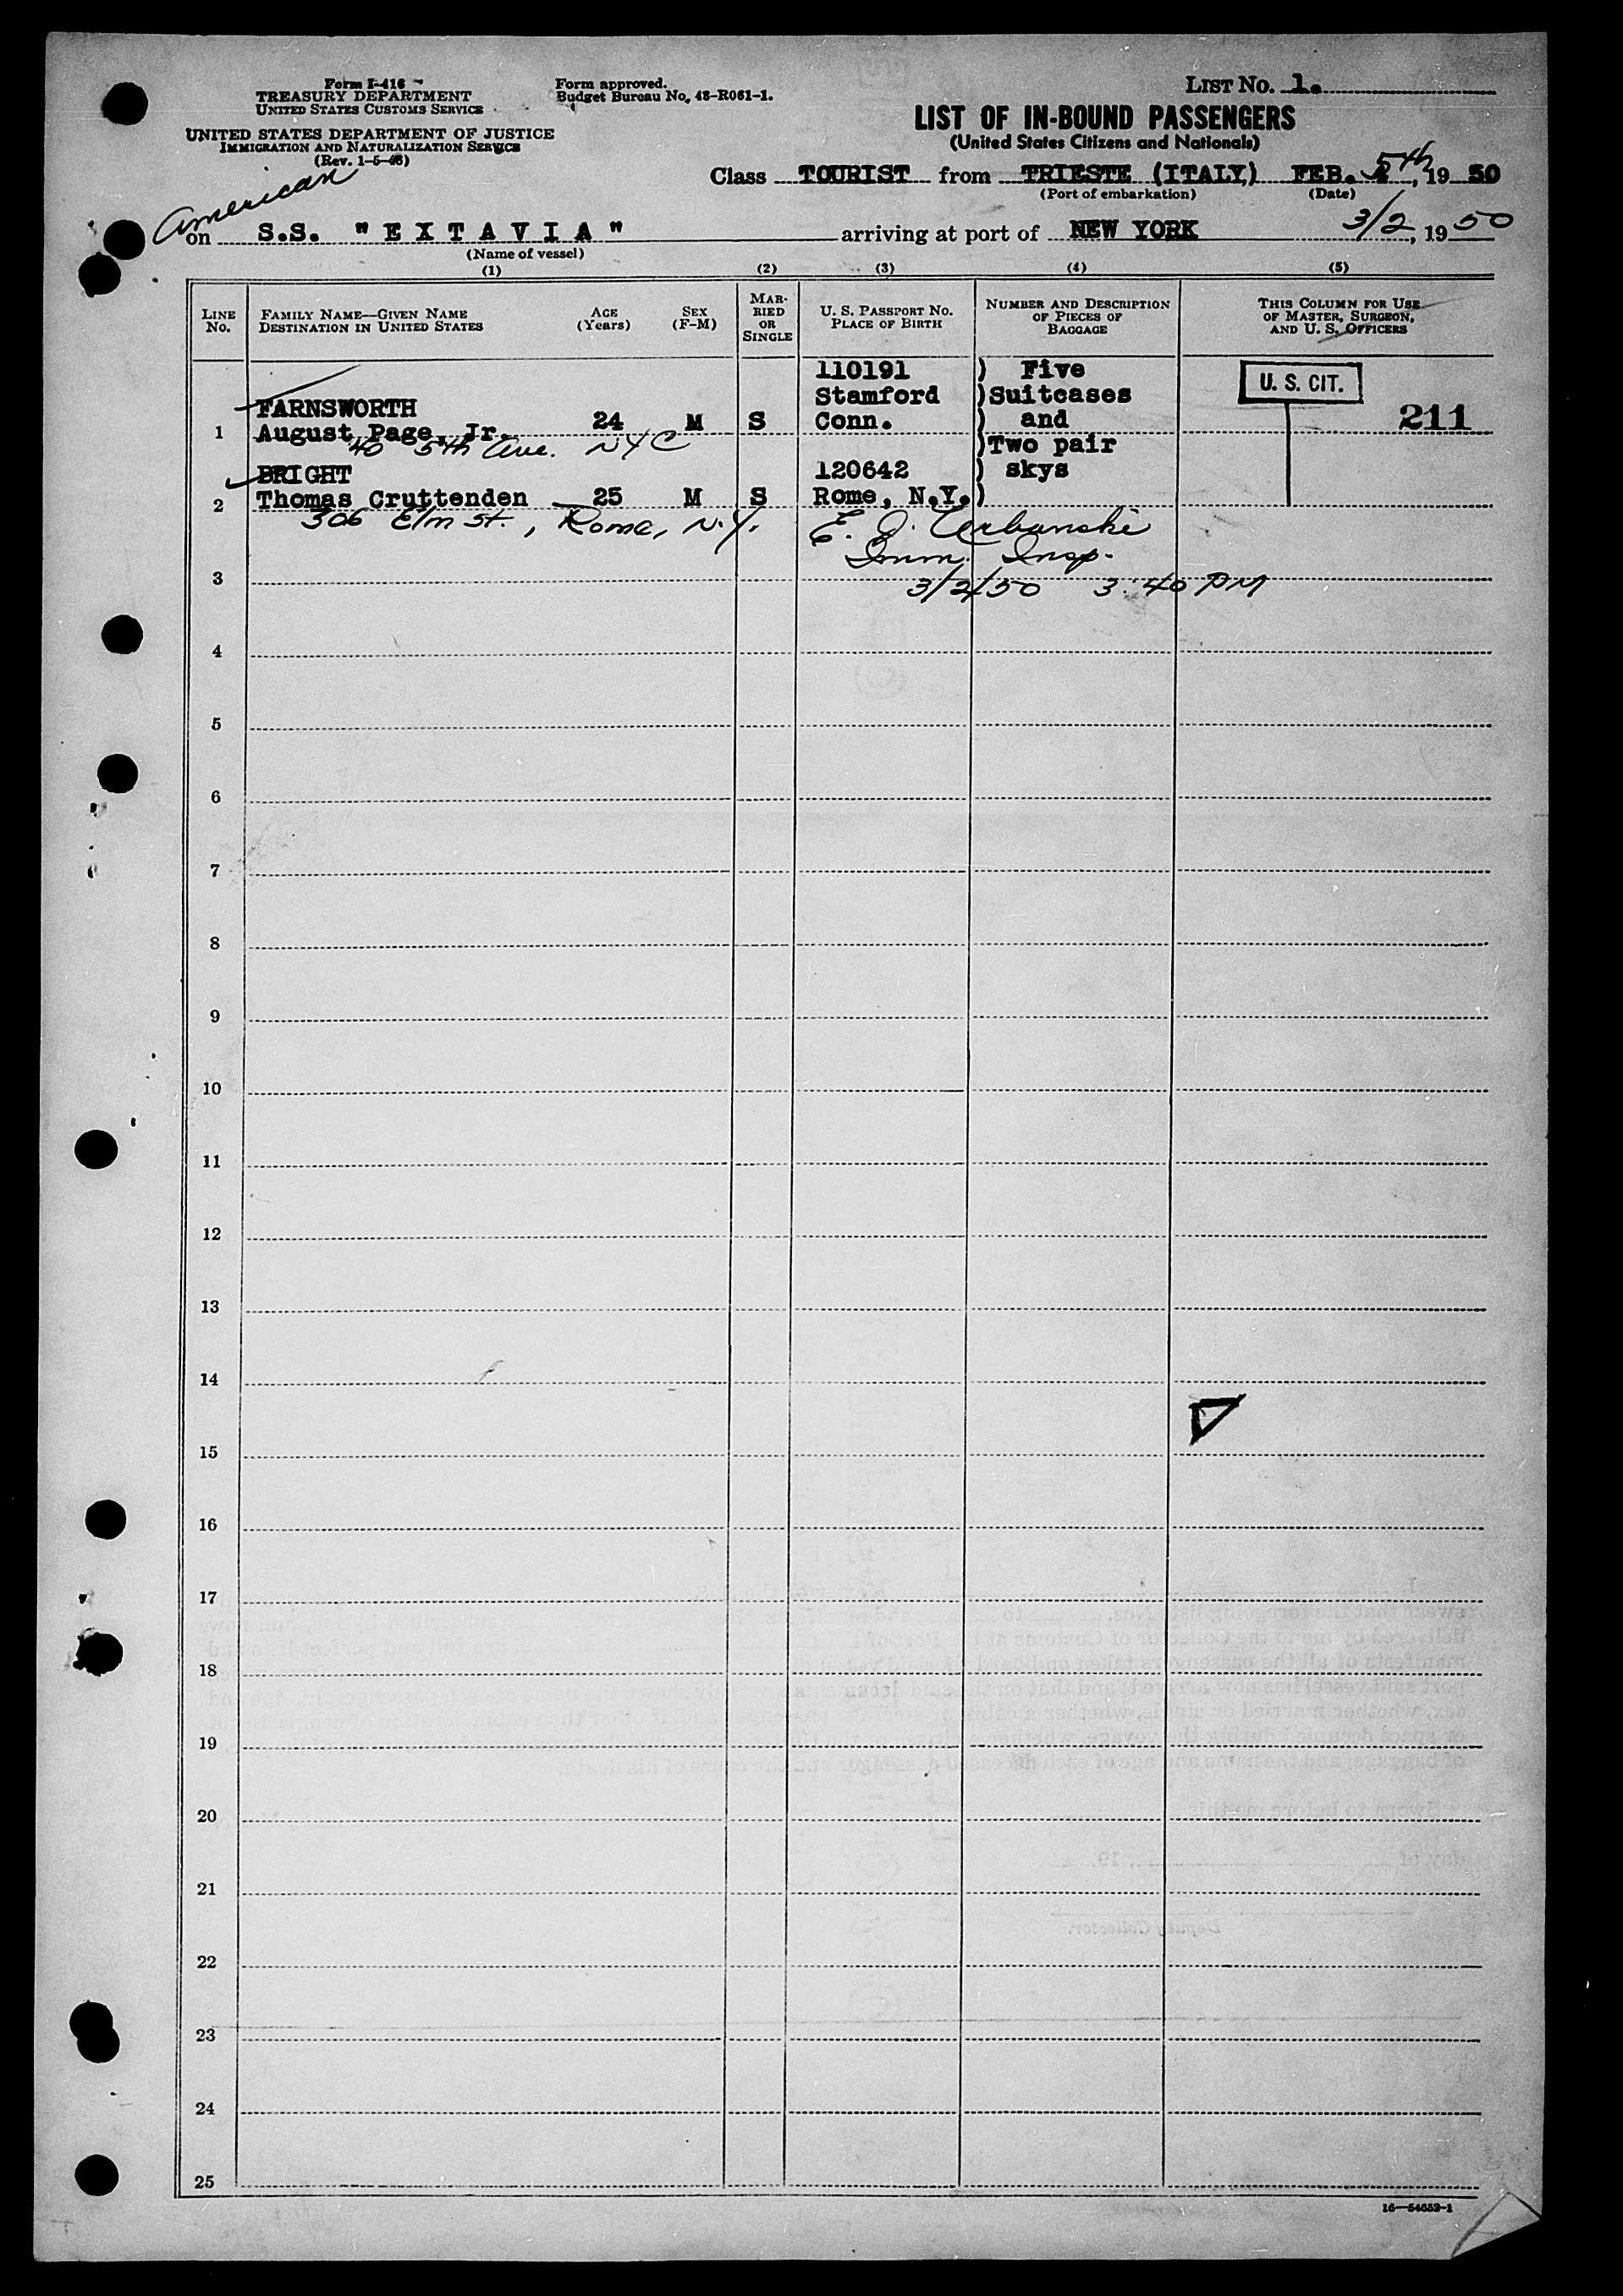 Form I-416
TREASURY DEPARTMENT
UNITED STATES CUSTOMS SERVICE
UNITED STATES DEPARTMENT OF JUSTICE
IMMIGRATION AND NATURALIZATION SERVICE
(Rev. 1-5-48)
Form approved.
Budget Bureau No. 43-R061-1.
LIST No. 1.
LIST OF IN-BOUND PASSENGERS
(United States Citizens and Nationals)
Class TOURIST from TRIESTE (ITALY) FEB. 5th, 19 50
(Port of embarkation) (Date)
American
on S.S. "EXTAVIA" arriving at port of NEW YORK 3/2, 1950
(Name of vessel)
(1) (2) (3) (4) (5)
LINE No. FAMILY NAME—GIVEN NAME DESTINATION IN UNITED STATES AGE (Years) SEX (F-M) MARRIED OR SINGLE U. S. PASSPORT NO. PLACE OF BIRTH NUMBER AND DESCRIPTION OF PIECES OF BAGGAGE THIS COLUMN FOR USE OF MASTER, SURGEON, AND U. S. OFFICERS
110191 ) Five
Stamford )Suitcases U. S. CIT.
FARNSWORTH
1 August Page, Jr. 24 M S Conn. ) and 211
40 5th Ave. NYC )Two pair
BRIGHT 120642 ) skys
2 Thomas Cruttenden 25 M S Rome, N.Y.)
306 Elm St., Rome, N.Y. E. J. Urbanski
Imm. Insp.
3 3/2/50 3:40 PM
4
5
6
7
8
9
10
11
12
13
14
15
16
17
18
19
20
21
22
23
24
25